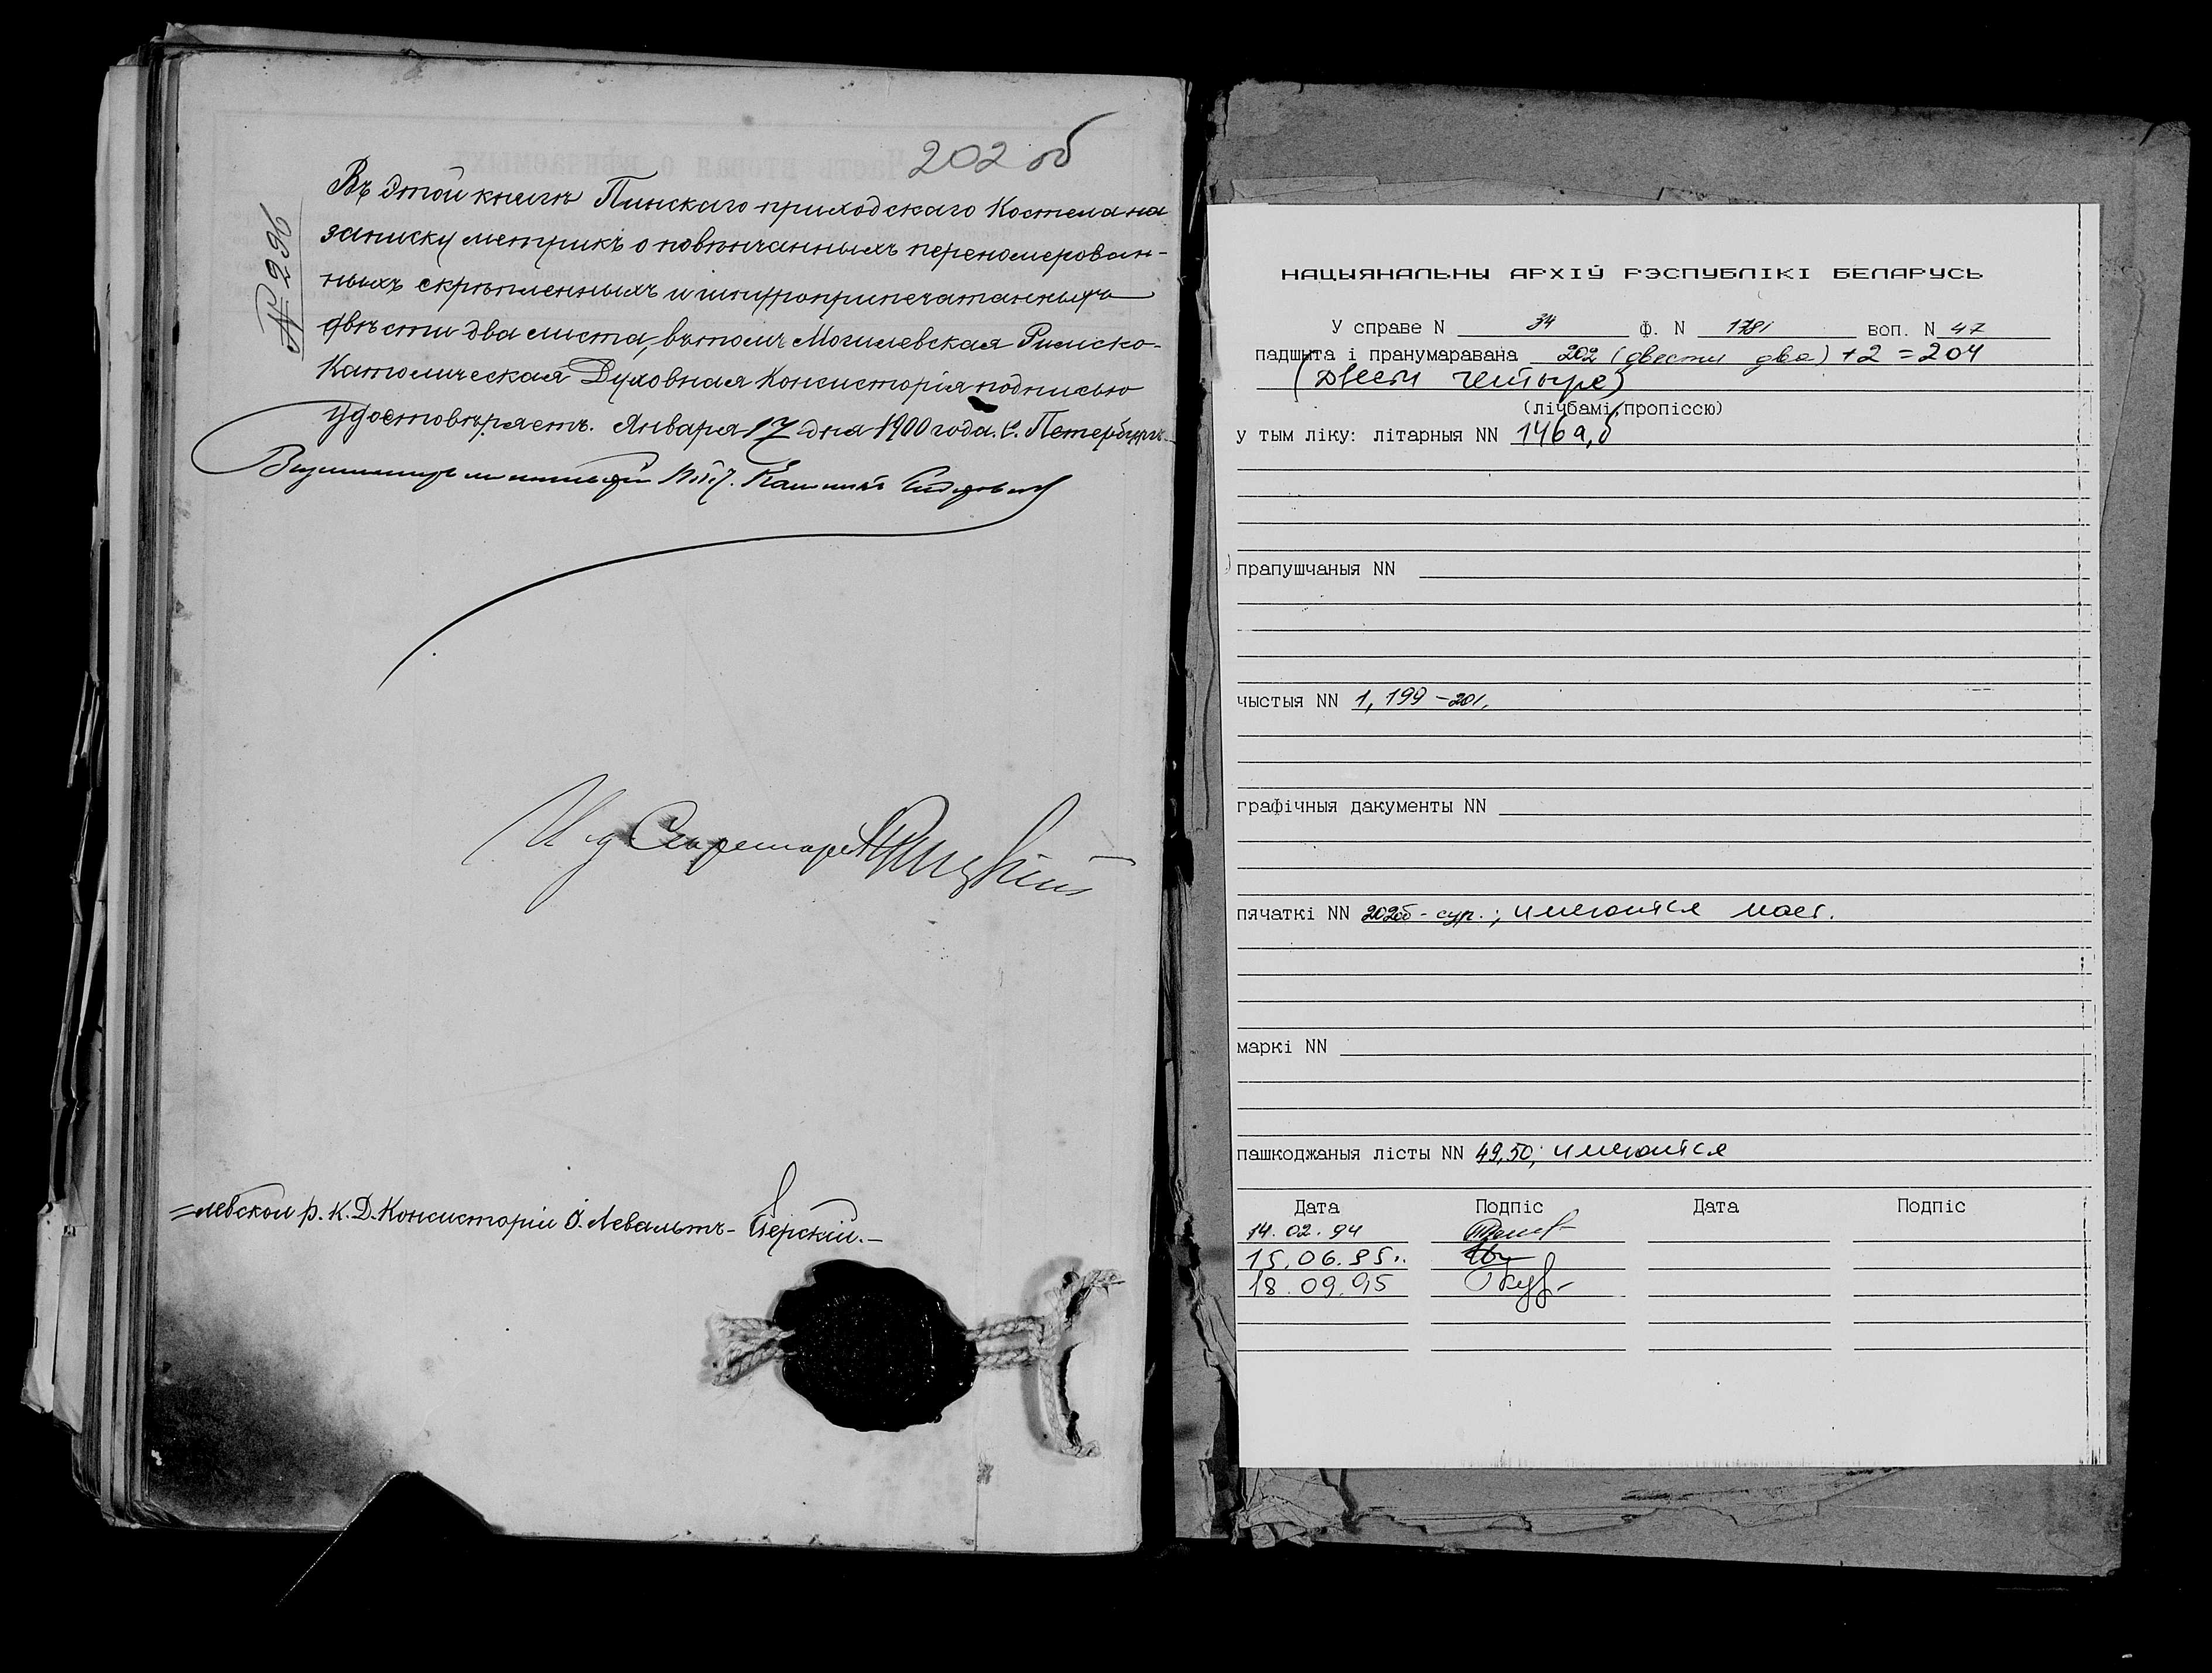 202 об
№ 296
Въ этой книгѣ Пинскаго приходскаго Костела на
записку метрикъ о повѣнчанныхъ перенумерован-
ныхъ скрѣпленныхъ и шнуроприпечатанныхъ
двѣсти два листа, въ томъ Могилевская Римско-
Католическая Духовная Консисторія подписью
удостовѣряетъ. Января 17 дня 1900 года. С. Петербургъ.
И д Секретаря
=левской Р. К. Д. Консисторіи О. Левальтъ-Езерскій.—
НАЦЫЯНАЛЬНЫ АРХІЎ РЭСПУБЛІКІ БЕЛАРУСЬ
У справе N 34 Ф. N 1781 воп. N 47
падшыта і пранумаравана 202 (двести два) +2 = 204
(двести четыре)
(лічбамі, пропіссю)
у тым ліку: літарныя NN 146 а, б
прапушчаныя NN
чыстыя NN 1, 199-201.
графічныя дакументы NN
пячаткі NN 202об - сур.; имеются маст.
маркі NN
пашкоджаныя лісты NN 49, 50; имеются
Дата Подпіс Дата Подпіс
14.02.94
15.06.95г.
18.09.95